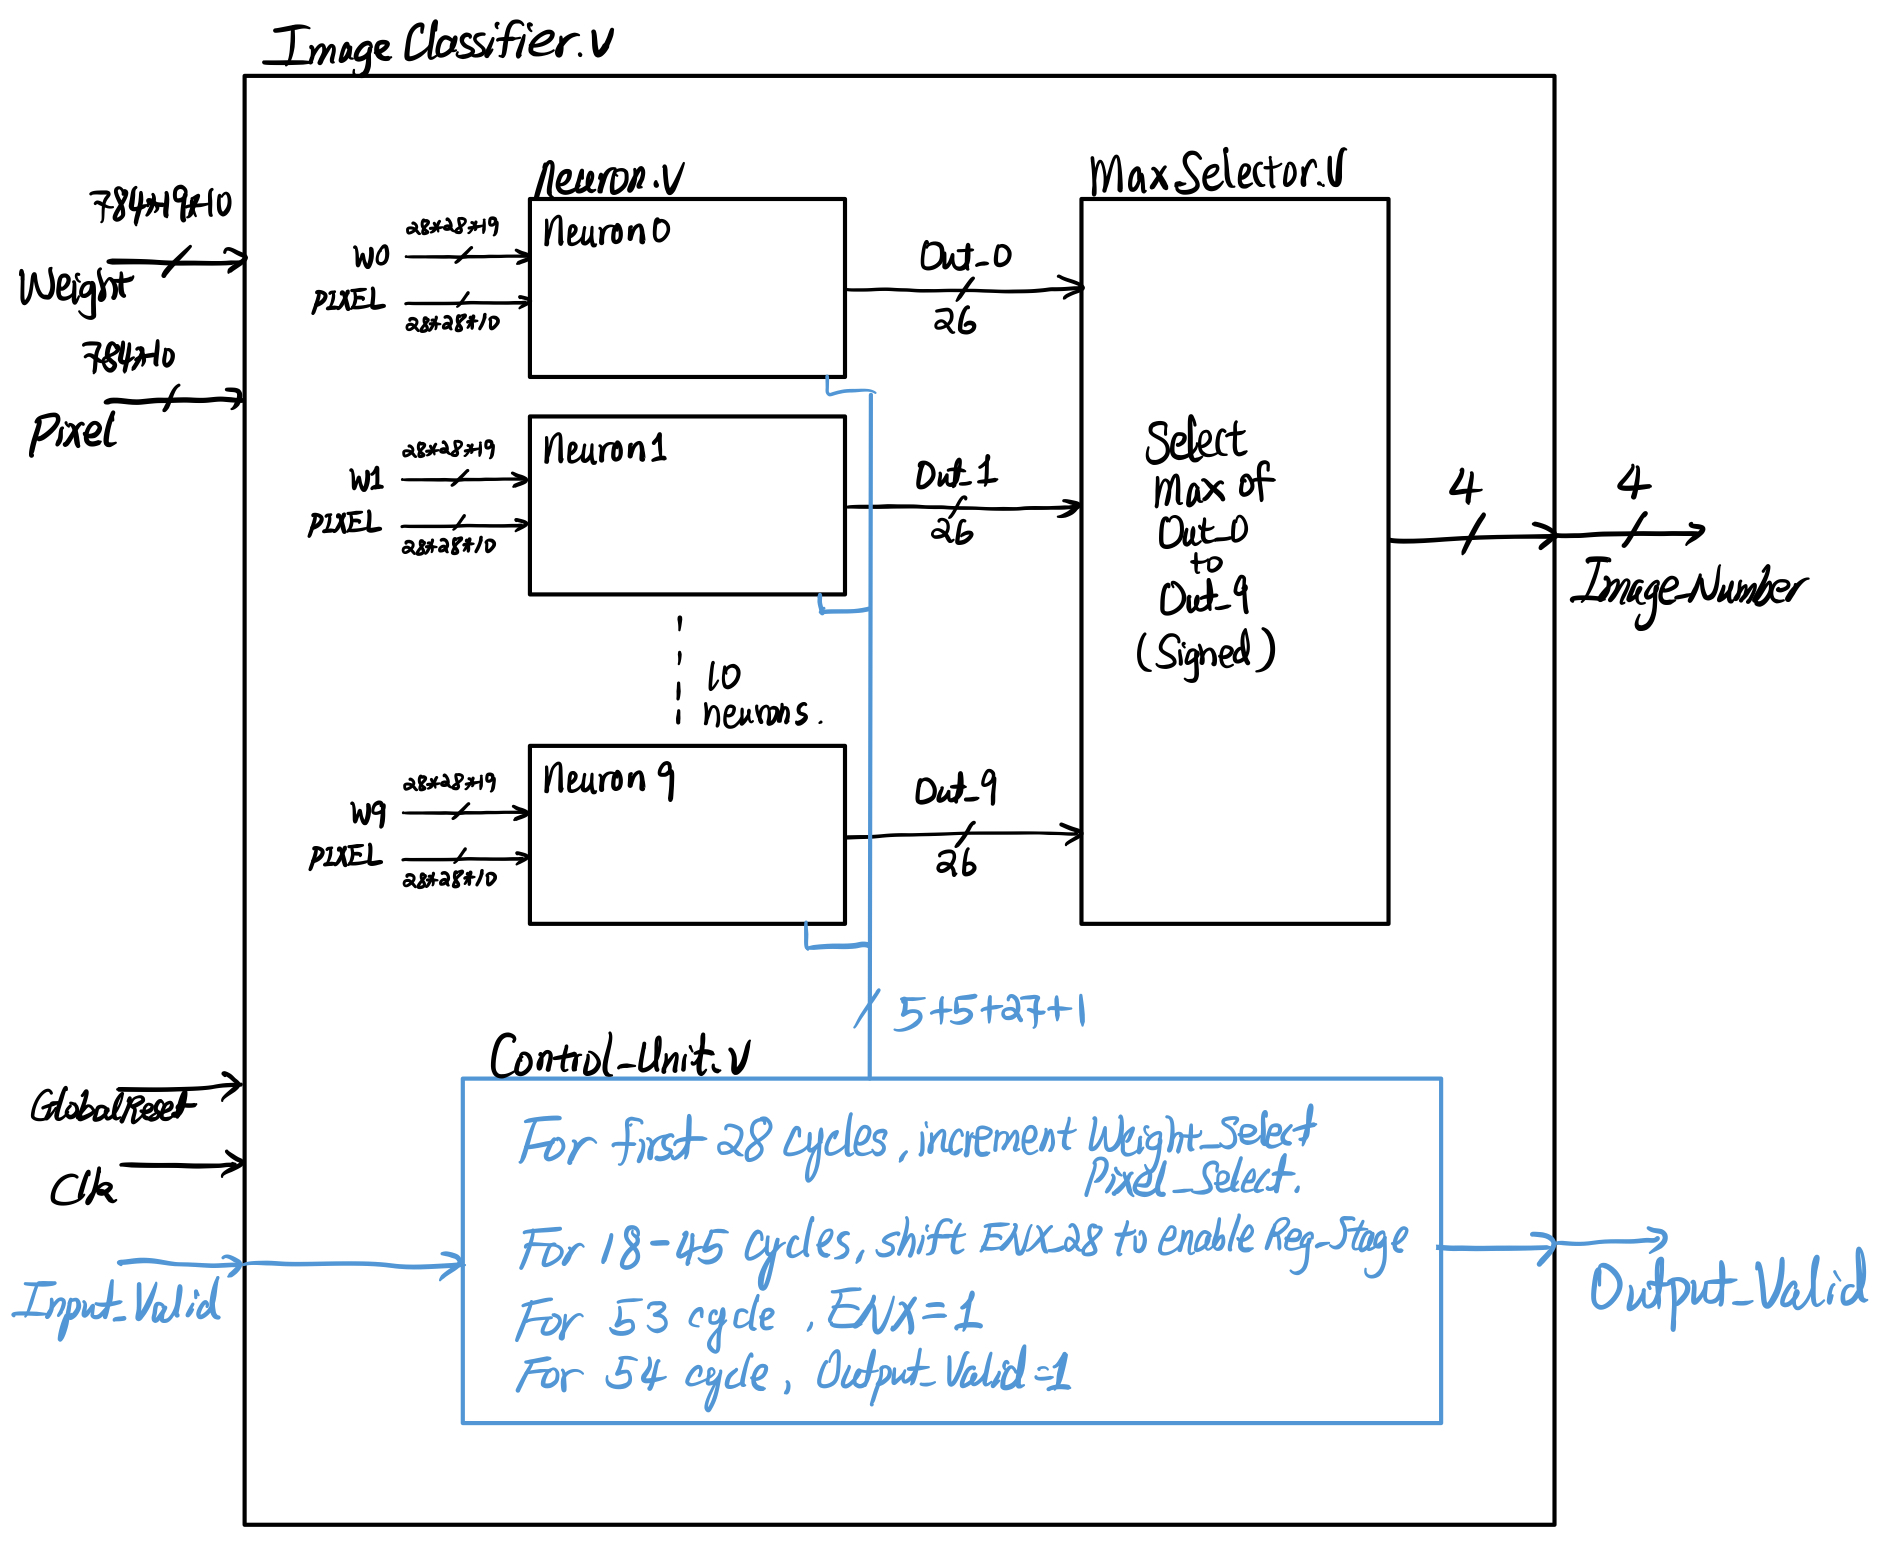 Image Classifier.v
784*19*10
Weight
784*10
Pixel
Neuron.v
Neuron0
W0
28*28*19
PIXEL
28*28*10
Out_0
26
Neuron1
W1
28*28*19
PIXEL
28*28*10
Out_1
26
10
neurons.
Neuron 9
W9
28*28*19
PIXEL
28*28*10
Out_9
26
Max_Selector.v
Select
Max of
Out_0
to
Out_9
(Signed)
4
4
Image_Number
5+5+27+1
Control_Unit.v
GlobalReset
Clk
Input_Valid
For first 28 cycles, increment Weight_Select
Pixel_Select.
For 18-45 cycles, shift ENX28 to enable Reg_Stage
For 53 cycle, ENX=1
For 54 cycle, Output_Valid=1
Output_Valid